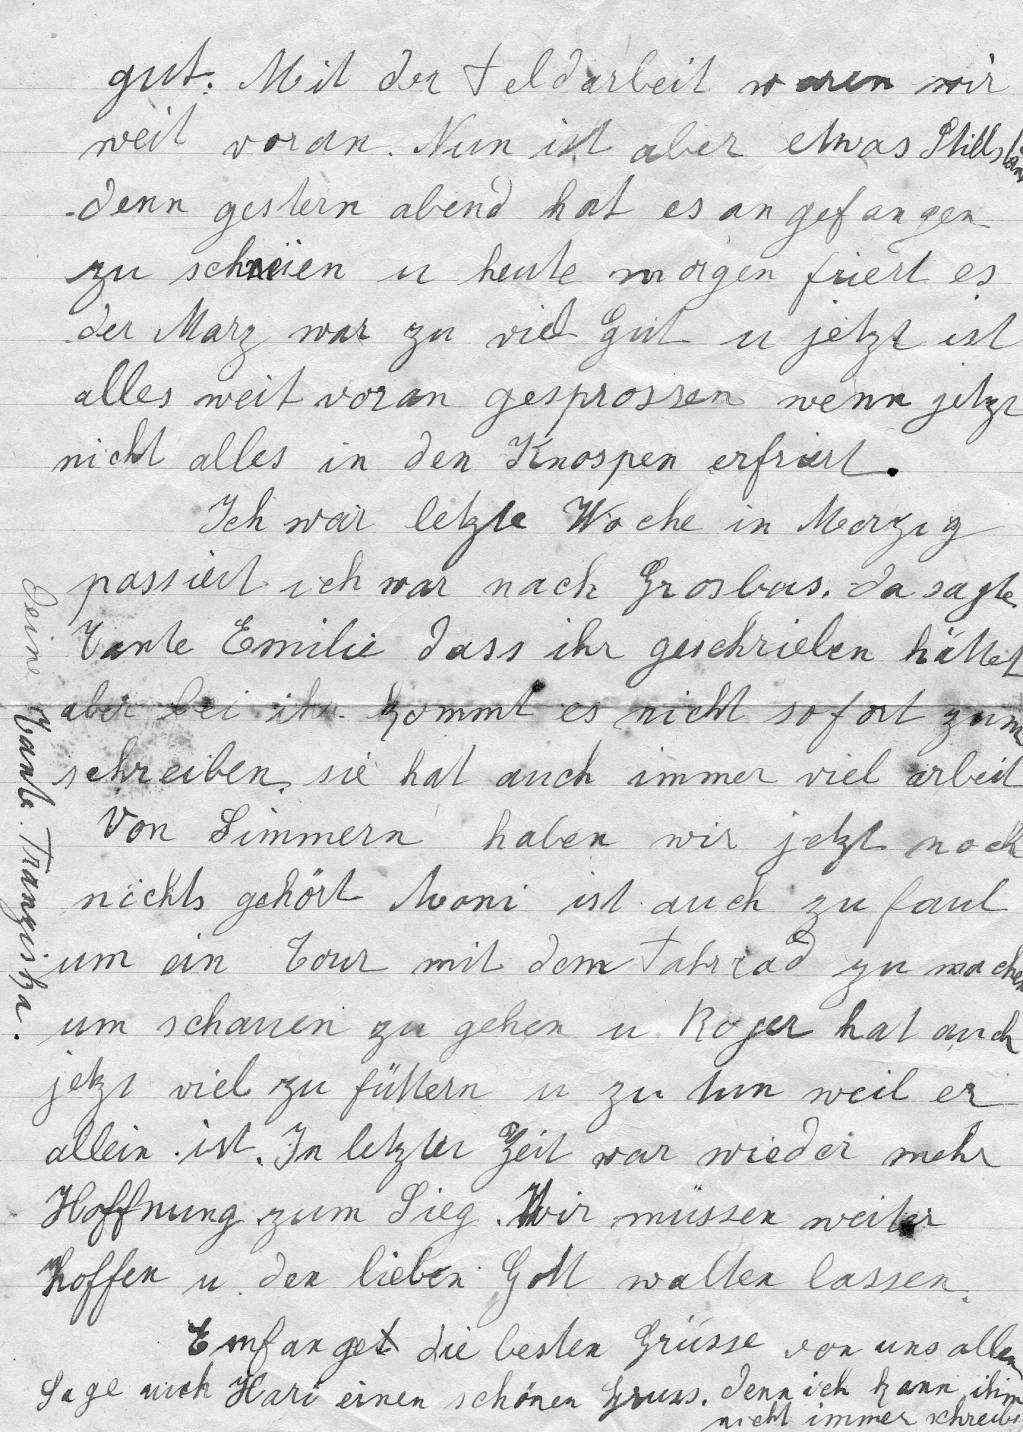 gut. Mit der Feldarbeit waren wir
weit voran. Nun ist aber etwas Stillstand
denn gestern abend hat es angefangen
zu schneien u heute morgen friert es
der Marz war zu viel Gut u jetzt ist
alles weit voran gesprossen wenn jetzt
nicht alles in den Knospen erfriert.
Ich war letzte Woche in Merzig
passiert ich war nach Grosbus. da sagte
Tante Emilie dass ihr geschrieben hättet
aber bei ihr kommt es nicht sofort zum
schreiben. sie hat auch immer viel arbeit
Von Simmern haben wir jetzt noch
nichts gehört ist auch zu faul
um ein Tour mit dem Fahrrad zu machen
um schauen zu gehen u. Roger hat auch
jetzt viel zu füttern u zu tun weil er
allein ist. In letzter Zeit war wieder mehr
Hoffnung zum Sieg. Wir müssen weiter
hoffen u. den lieben Gott walten lassen.
Emfanget die besten Grüsse von uns allen
Sage auch Hari einen schönen Gruss. denn ich kann ihm
nicht immer schreiben
Deine Tante Franziska.